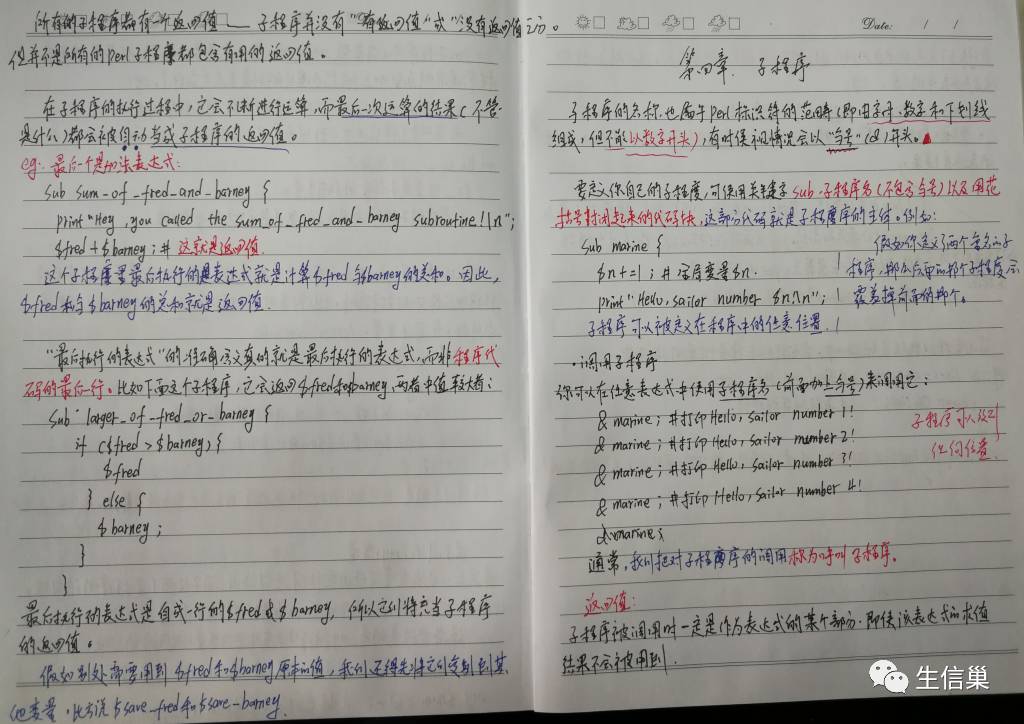 所有的子程序都有一个返回值——子程序并没有"有返回值"或"没有返回值"之分。
但并不是所有的Perl子程序都包含有用的返回值。
在子程序的执行过程中，它会不断进行运算，而最后一次运算的结果（不管
是什么）都会被自动当成子程序的返回值。
eg: 最后一个是加法表达式：
sub sum_of_fred_and_barney {
print "Hey, you called the sum_of_fred_and_barney subroutine!\n";
$fred + $barney; # 这就是返回值
这个子程序里最后执行的表达式就是计算$fred与$barney的总和。因此，
$fred和与$barney的总和就是返回值.
"最后执行的表达式"的准确含义真的就是最后执行的表达式，而非程序代
码的最后一行。比如下面这个子程序，它会返回$fred和$barney，两者中值较大者：
Sub larger_of_fred_or_barney {
if ($fred > $barney) {
$fred
} else {
$barney;
}
}
最后执行的表达式是自成一行的$fred或$barney，所以它们将充当子程序
的返回值。
假如别处需要用到$fred和$barney原本的值，我们还得先将它们复制到其
他变量，比方说$save_fred和$save_barney.
Date: / /
第四章. 子程序
子程序的名称也属于Perl标识符的范畴（即由字母、数字和下划线
组成，但不能以数字开头），有时候视情况会以"与号"(&)开头。
要定义你自己的子程序，可使用关键字sub、子程序名（不包含与号）以及用花
括号封闭起来的代码块，这部分代码就是子程序的主体。例如：
sub marine {
$n += 1; # 全局变量$n.
print "Hello, sailor number $n!\n";
}
假如你定义了两个重名的子
程序，那么后面的那个子程序会
覆盖掉前面的那个。
子程序可以被定义在程序中的任意位置.
·调用子程序
你可以在任意表达式中使用子程序名（前面加上与号）来调用它：
& marine; #打印Hello, sailor number 1!
& marine; #打印Hello, sailor number 2!
& marine; #打印Hello, sailor number 3!
& marine; #打印Hello, sailor number 4!
&marine;
子程序可以放到
任何位置.
通常，我们把对子程序的调用称为呼叫子程序。
返回值：
子程序被调用时一定是作为表达式的某个部分，即使该表达式的求值
结果不会被用到.
生信巢